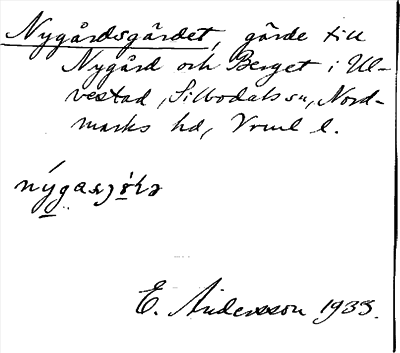 Nygårdsgärdet, gärde till
Nygård och Berget i Ul-
vestad, Silbodals sn, Nord-
marks hd, Vrml l.
E. Andersson 1933.